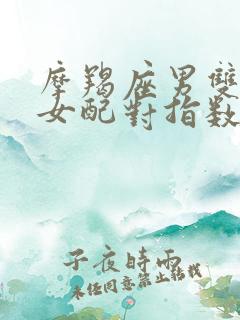 摩羯座男雙
女配對指數
子夜時雨
未經同意禁止轉載